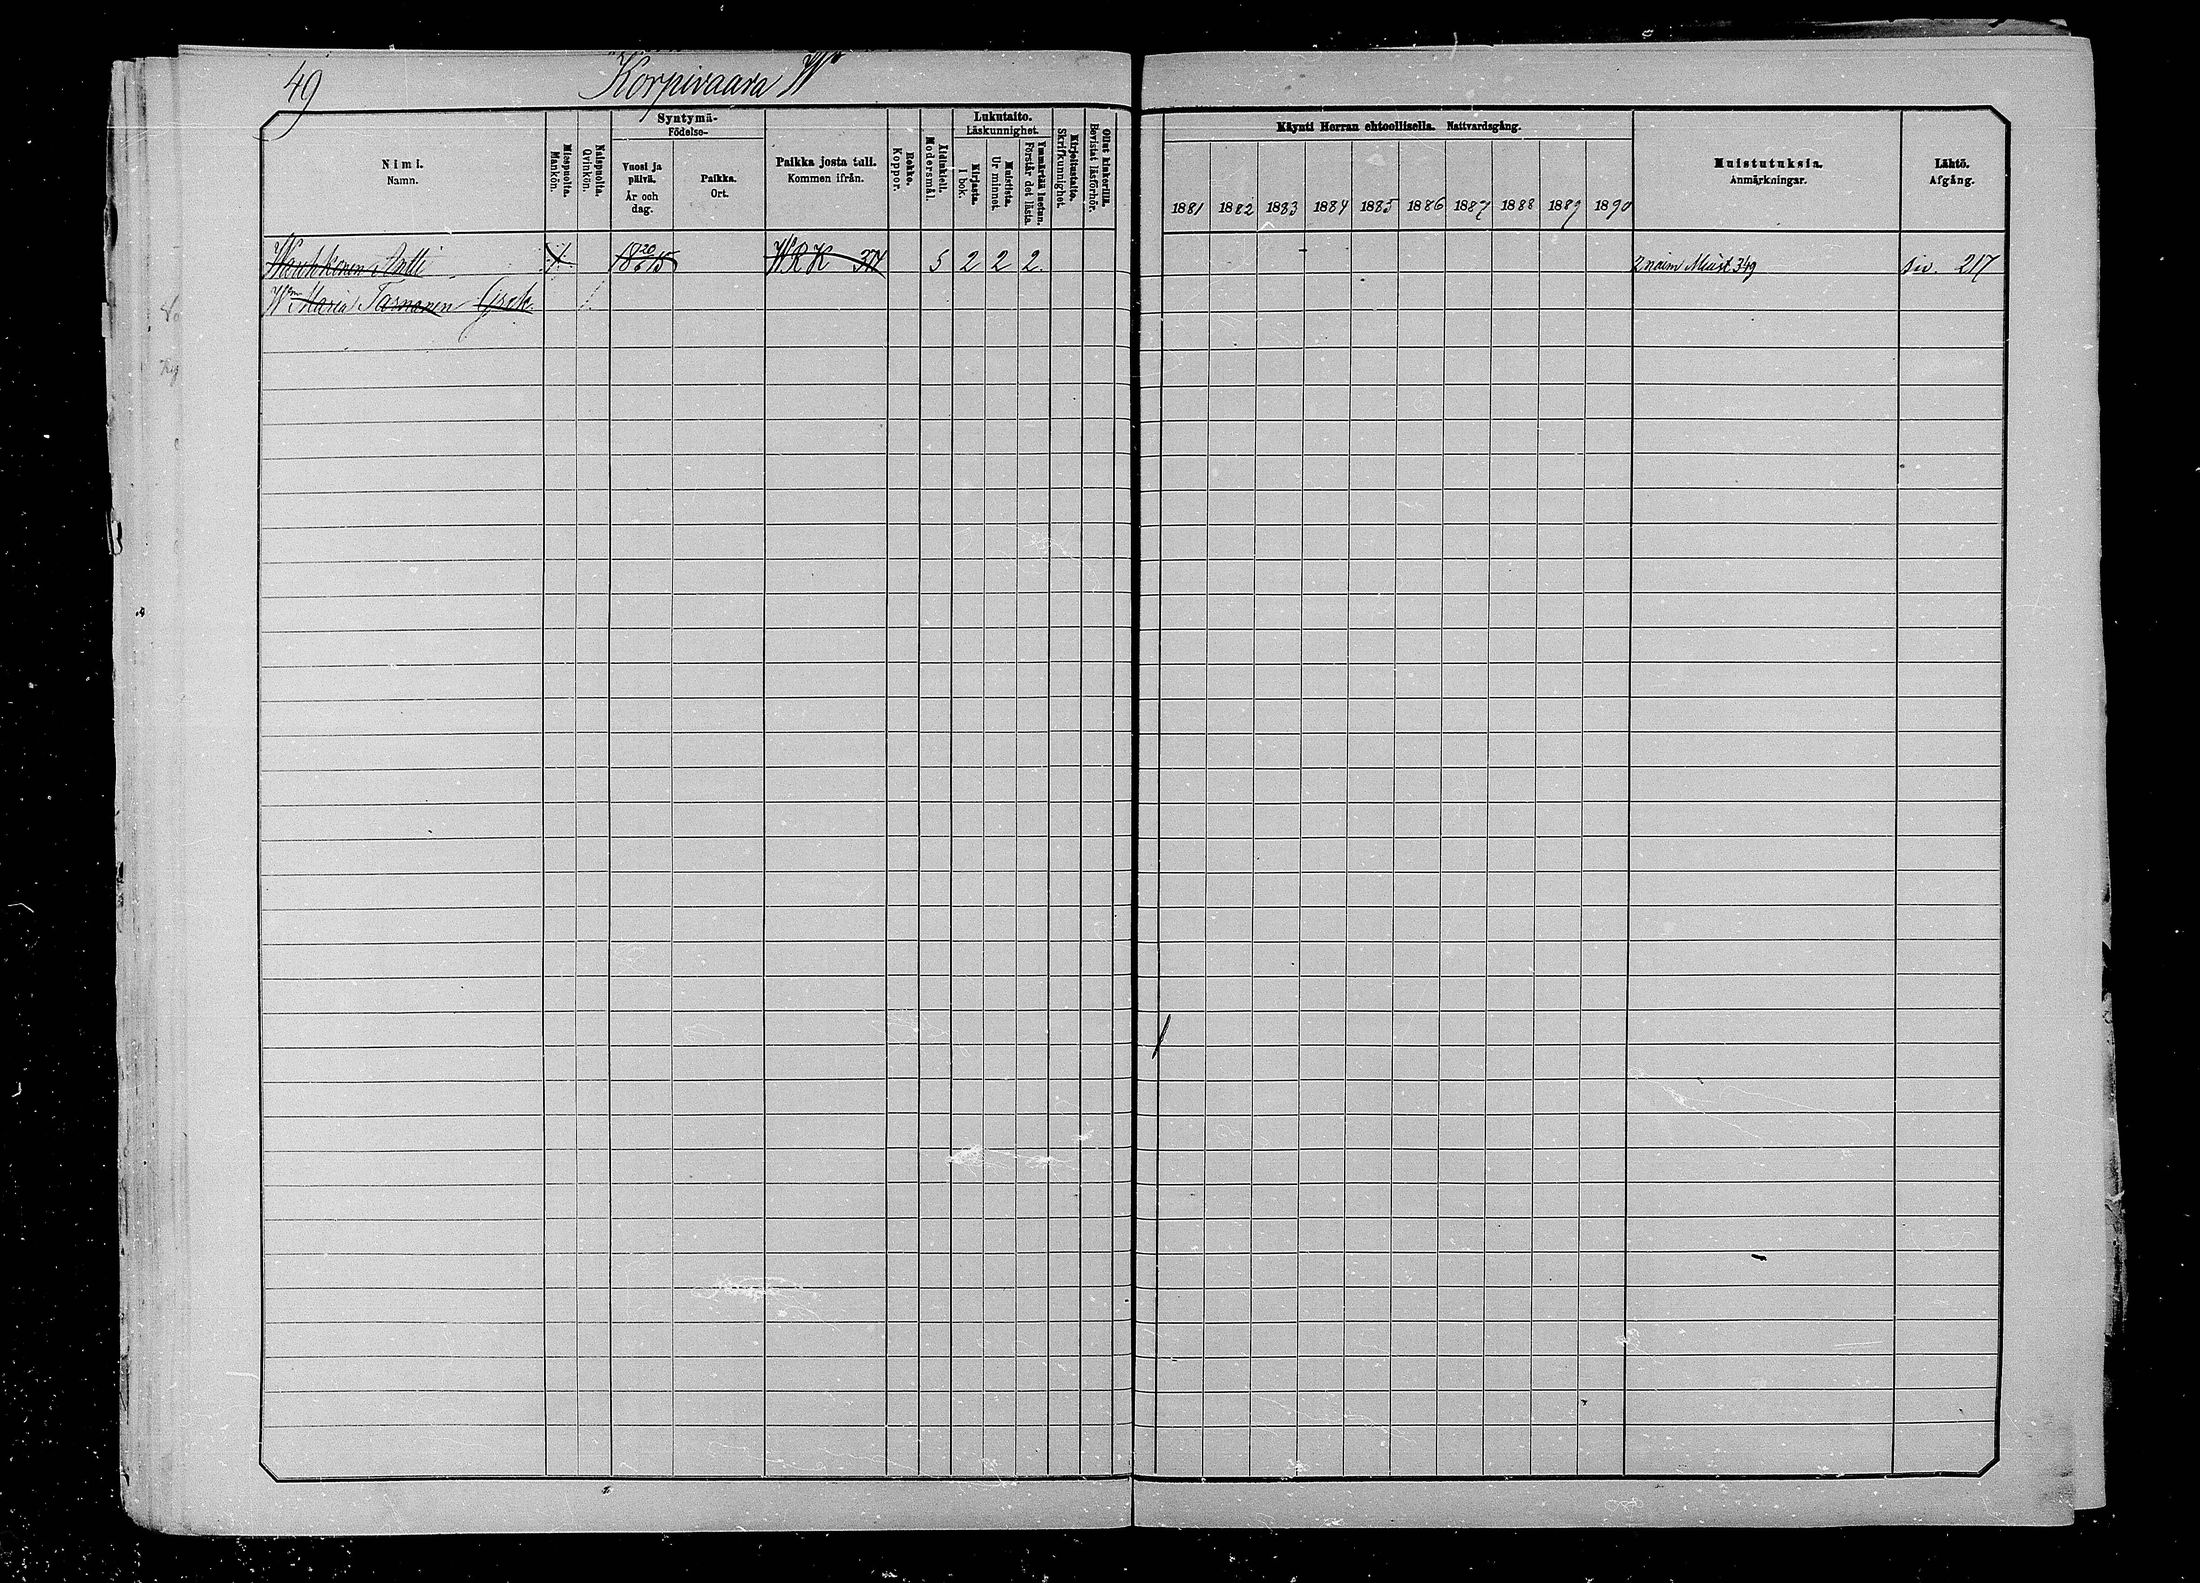 49 Korpivaara W
Syntymä-
Födelse-
Nimi.
Namn.
Miespuolta.
Mankön.
Naispuolta.
Qvinkön.
Vuosi ja päivä.
År och dag.
Paikka.
Ort.
Paikka josta tull.
Kommen ifrån.
Rokko.
Koppor.
Äidinkieli.
Modersmål.
Lukutaito.
Läskunnighet.
Kirjasta.
I bok.
Muistista.
Ur minnet.
Ymmärtää luetun.
Förstår det lästa.
Kirjoitustaito.
Skrifkunnighet.
Ollut kinkerillä.
Bevistat läsförhör.
Käynti Herran ehtoollisella. Nattvardsgång.
1881 1882 1883 1884 1885 1886 1887 1888 1889 1890
Muistutuksia.
Anmärkningar.
Lähtö.
Afgång.
Antti 18 20/6 15 W R K 374 5 2 2 2 2 naim Muist 349 siv. 217
Maria